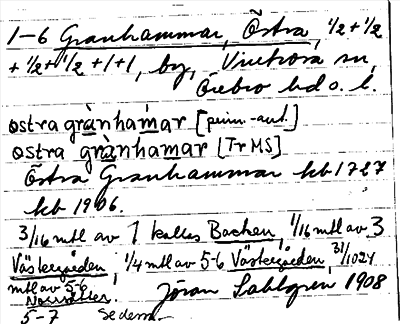 1-6 Granhammar, Östra, 1/2+1/2
+ 1/2+1/2 +1+1, by, Vintrosa sn,
Örebro hd o. l.
ostra grànhamar [prim.-aut.]
ostra grànhamar [Tr MS]
Östra Granhammar kb 1727
kb 1906.
3/16 mtl av 1 kallas Backen, 1/16 mtl av 3
Västergården, 1/4 mtl av 5-6 Västergården, 31/1024
mtl av 5-6
Norrsätter. Jöran Sahlgren 1908
5-7 Se denna